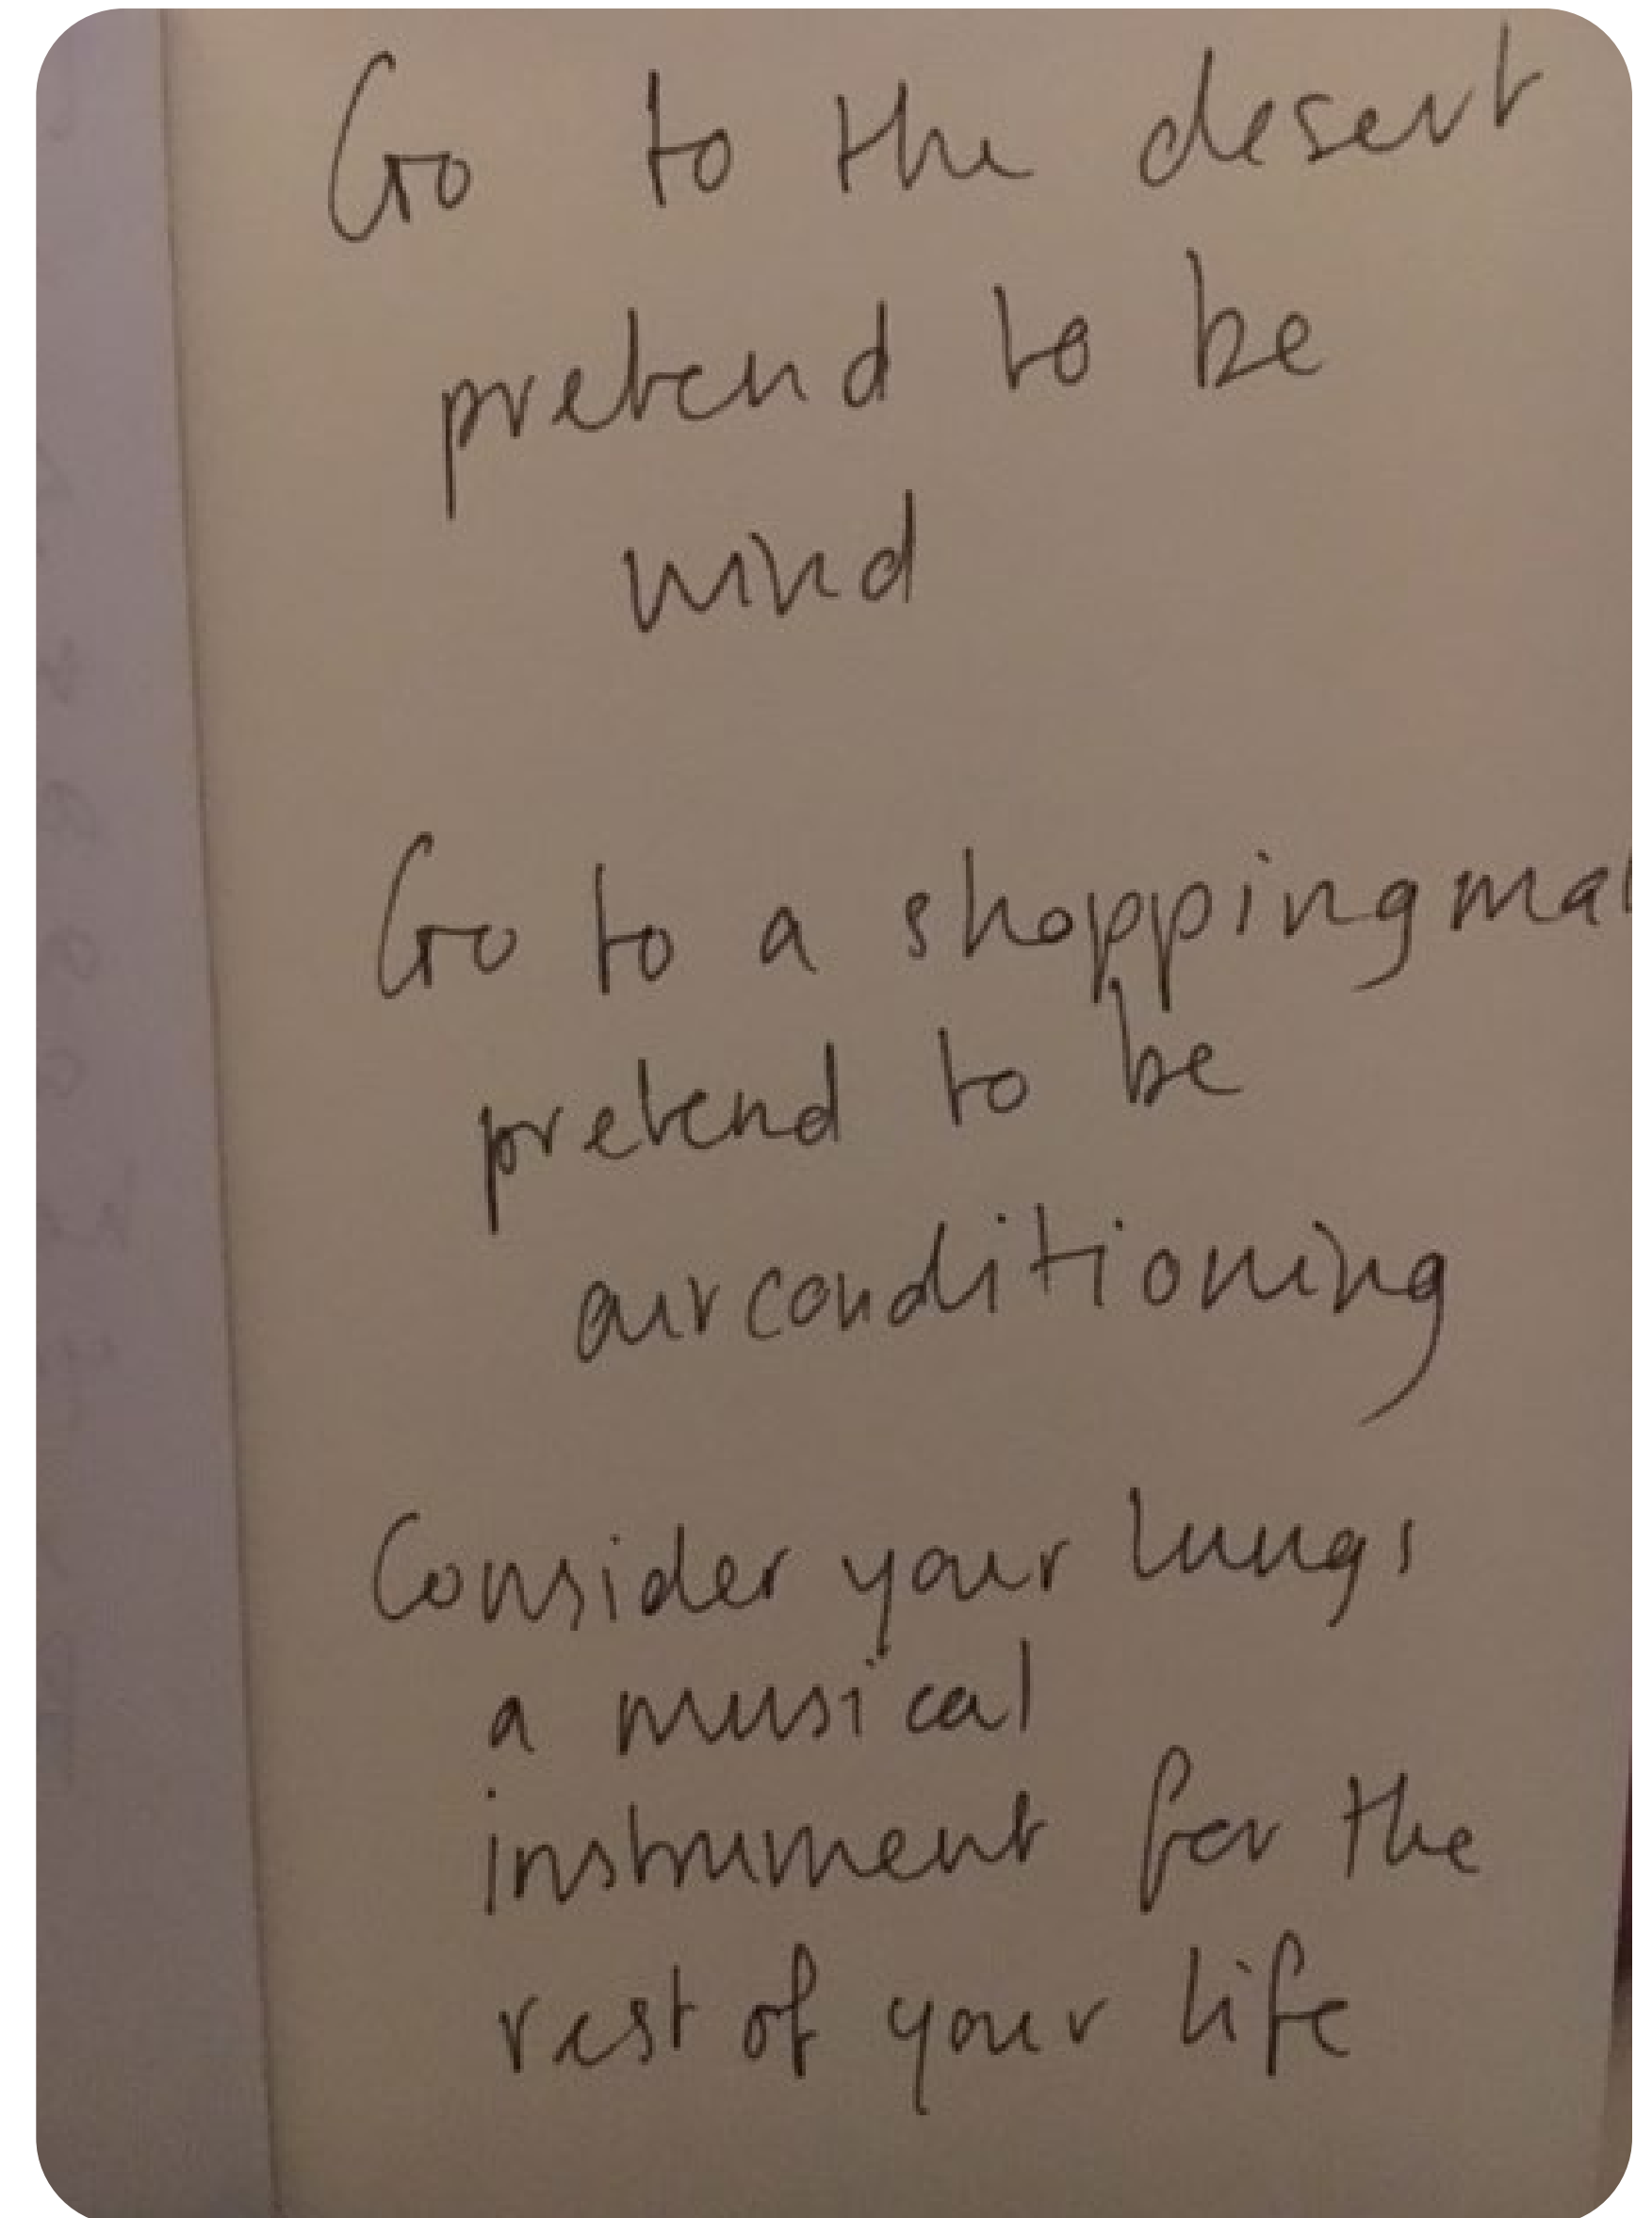 Go to the desert
pretend to be
wind
Go to a shoppingmal
pretend to be
airconditioning
Consider your lungs
a musical
instrument for the
rest of your life